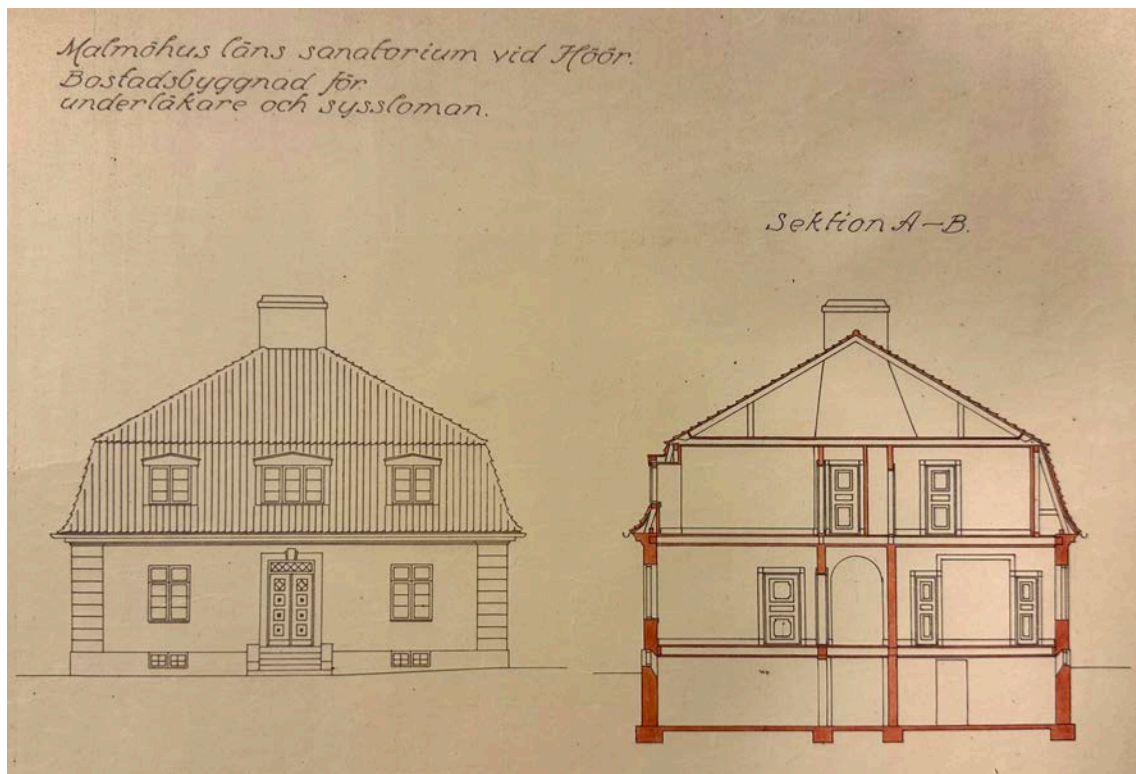 Malmöhus läns sanatorium vid Höör.
Bostadsbyggnad för
underläkare och syssloman.
Sektion A-B.